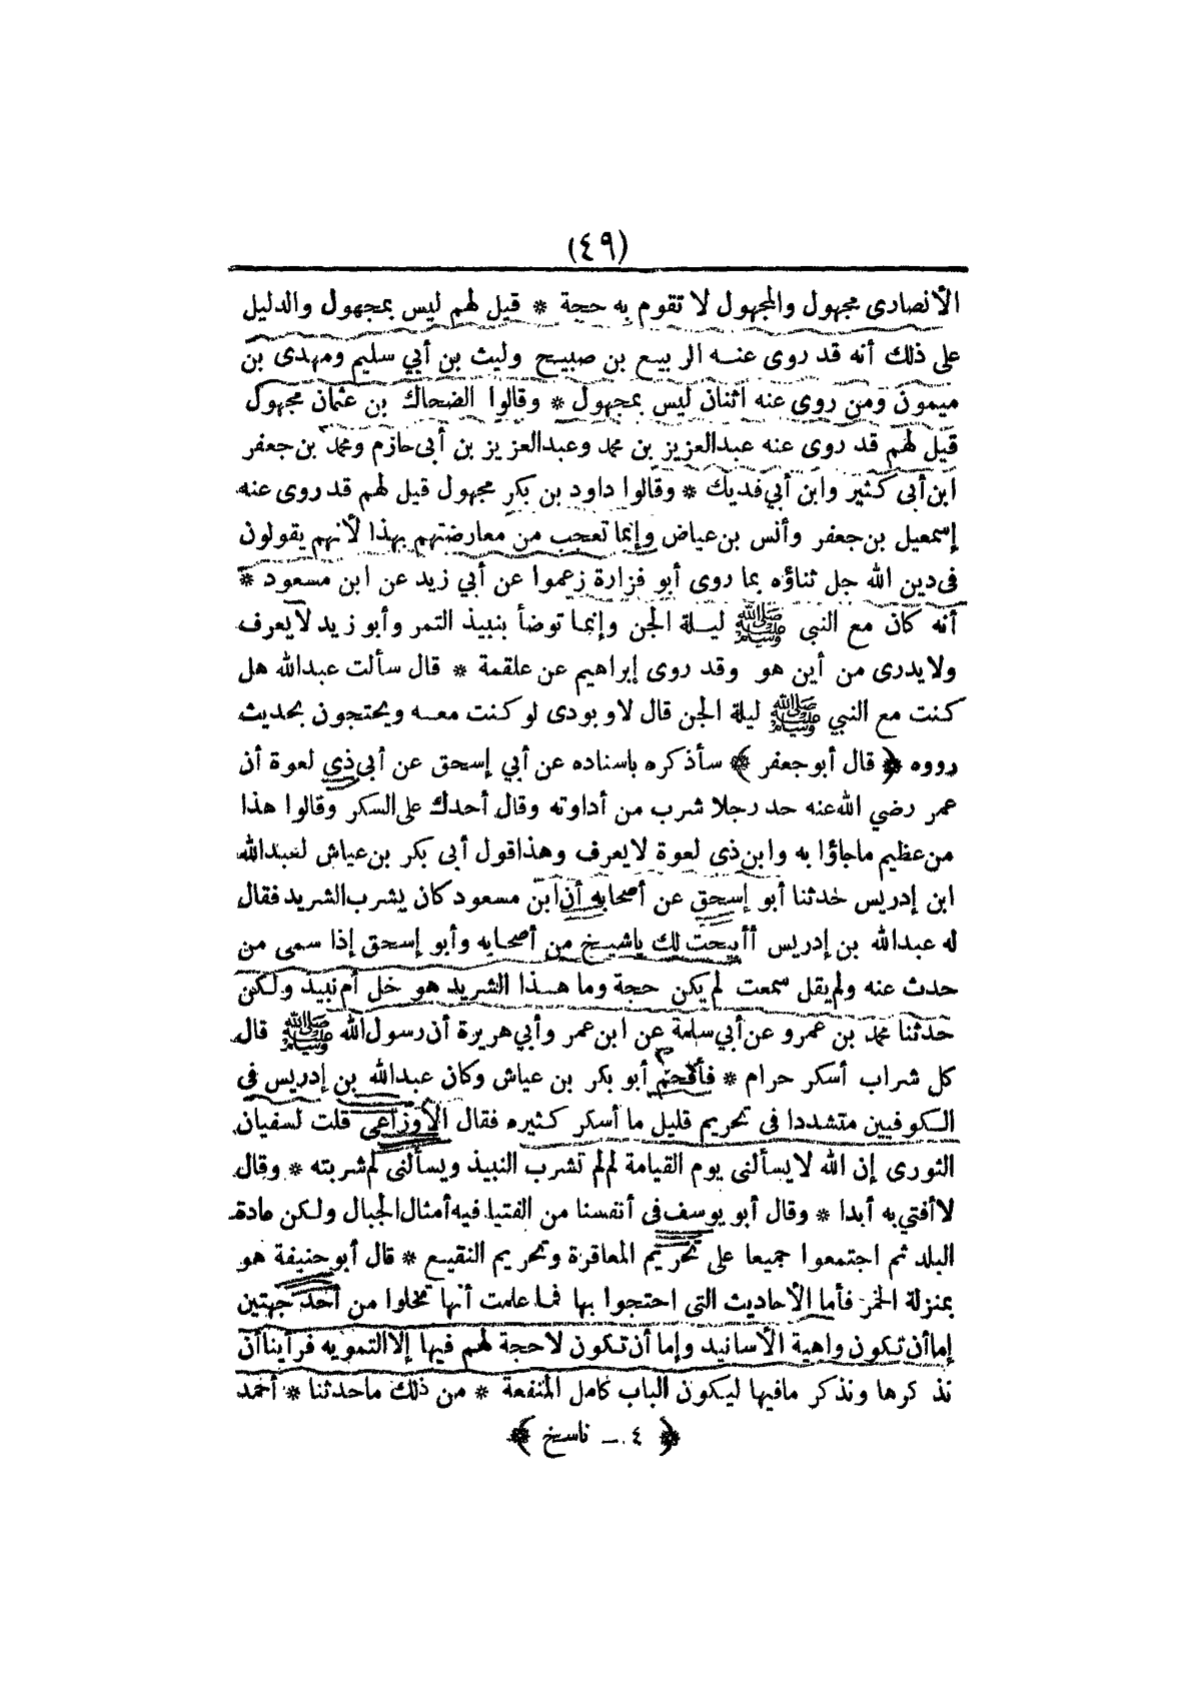 (٤٩)
الأنصارى مجهول والمجهول لا تقوم به حجة * قيل لهم ليس بمجهول والدليل
على ذلك أنه قد روى عنه الربيع بن صبيح وليث بن أبي سليم ومهدى بن
ميمون ومن روى عنه اثنان ليس بمجهول * وقالوا الضحاك بن عثمان مجهول
قيل لهم قد روى عنه عبدالعزيز بن محمد وعبدالعزيز بن أبى حازم ومحمد بن جعفر
ابن أبى كثير وابن أبي فديك * وقالوا داود بن بكر مجهول قيل لهم قد روى عنه
إسمعيل بن جعفر وأنس بن عياض وإنما تعجب من معارضتهم بهذا لأنهم يقولون
فى دين الله جل ثناؤه بما روى أبو فزارة زعموا عن أبي زيد عن ابن مسعود *
أنه كان مع النبي ﷺ ليلة الجن وإنما توضأ بنبيذ التمر وأبو زيد لا يعرف
ولا يدرى من أين هو وقد روى إبراهيم عن علقمة * قال سألت عبدالله هل
كنت مع النبي ﷺ ليلة الجن قال لا وبودى لو كنت معه ويحتجون بحديث
رووه ﴿ قال أبو جعفر ﴾ سأذكره باسناده عن أبي إسحق عن أبى ذي لعوة أن
عمر رضي الله عنه حد رجلا شرب من أداوته وقال أحدك على السكر وقالوا هذا
من عظيم ماجاؤا به وابن ذى لعوة لا يعرف وهذا قول أبى بكر بن عياش لعبدالله
ابن إدريس حدثنا أبو إسحق عن أصحابه أن ابن مسعود كان يشرب الشريد فقال
له عبدالله بن إدريس أأبيحت لك ياشيخ من أصحابه وأبو إسحق إذا سمى من
حدث عنه ولم يقل سمعت لم يكن حجة وما هذا الشريد هو خل أم نبيذ ولكن
حدثنا محمد بن عمرو عن أبي سلمة عن ابن عمر وأبي هريرة أن رسول الله ﷺ قال
كل شراب أسكر حرام * فأفحم أبو بكر بن عياش وكان عبدالله بن إدريس فى
الكوفيين متشددا فى تحريم قليل ما أسكر كثيره فقال الأوزاعى قلت لسفيان
الثورى إن الله لا يسألنى يوم القيامة لم لم تشرب النبيذ ويسألنى لم شربته * وقال
لا أفتي به أبدا * وقال أبو يوسف فى أنفسنا من الفتيا فيه أمثال الجبال ولكن عادة
البلد ثم اجتمعوا جميعا على تحريم المعاقرة وتحريم النقيع * قال أبو حنيفة هو
بمنزلة الخمر فأما الأحاديث التى احتجوا بها فما علمت أنها تخلوا من أحد جهتين
إما أن تكون واهية الأسانيد وإما أن تكون لا حجة لهم فيها إلا التمويه فرأينا أن
نذكرها ونذكر مافيها ليكون الباب كامل المنفعة * من ذلك ماحدثنا * أحمد
﴿ ٤ ـ ناسخ ﴾